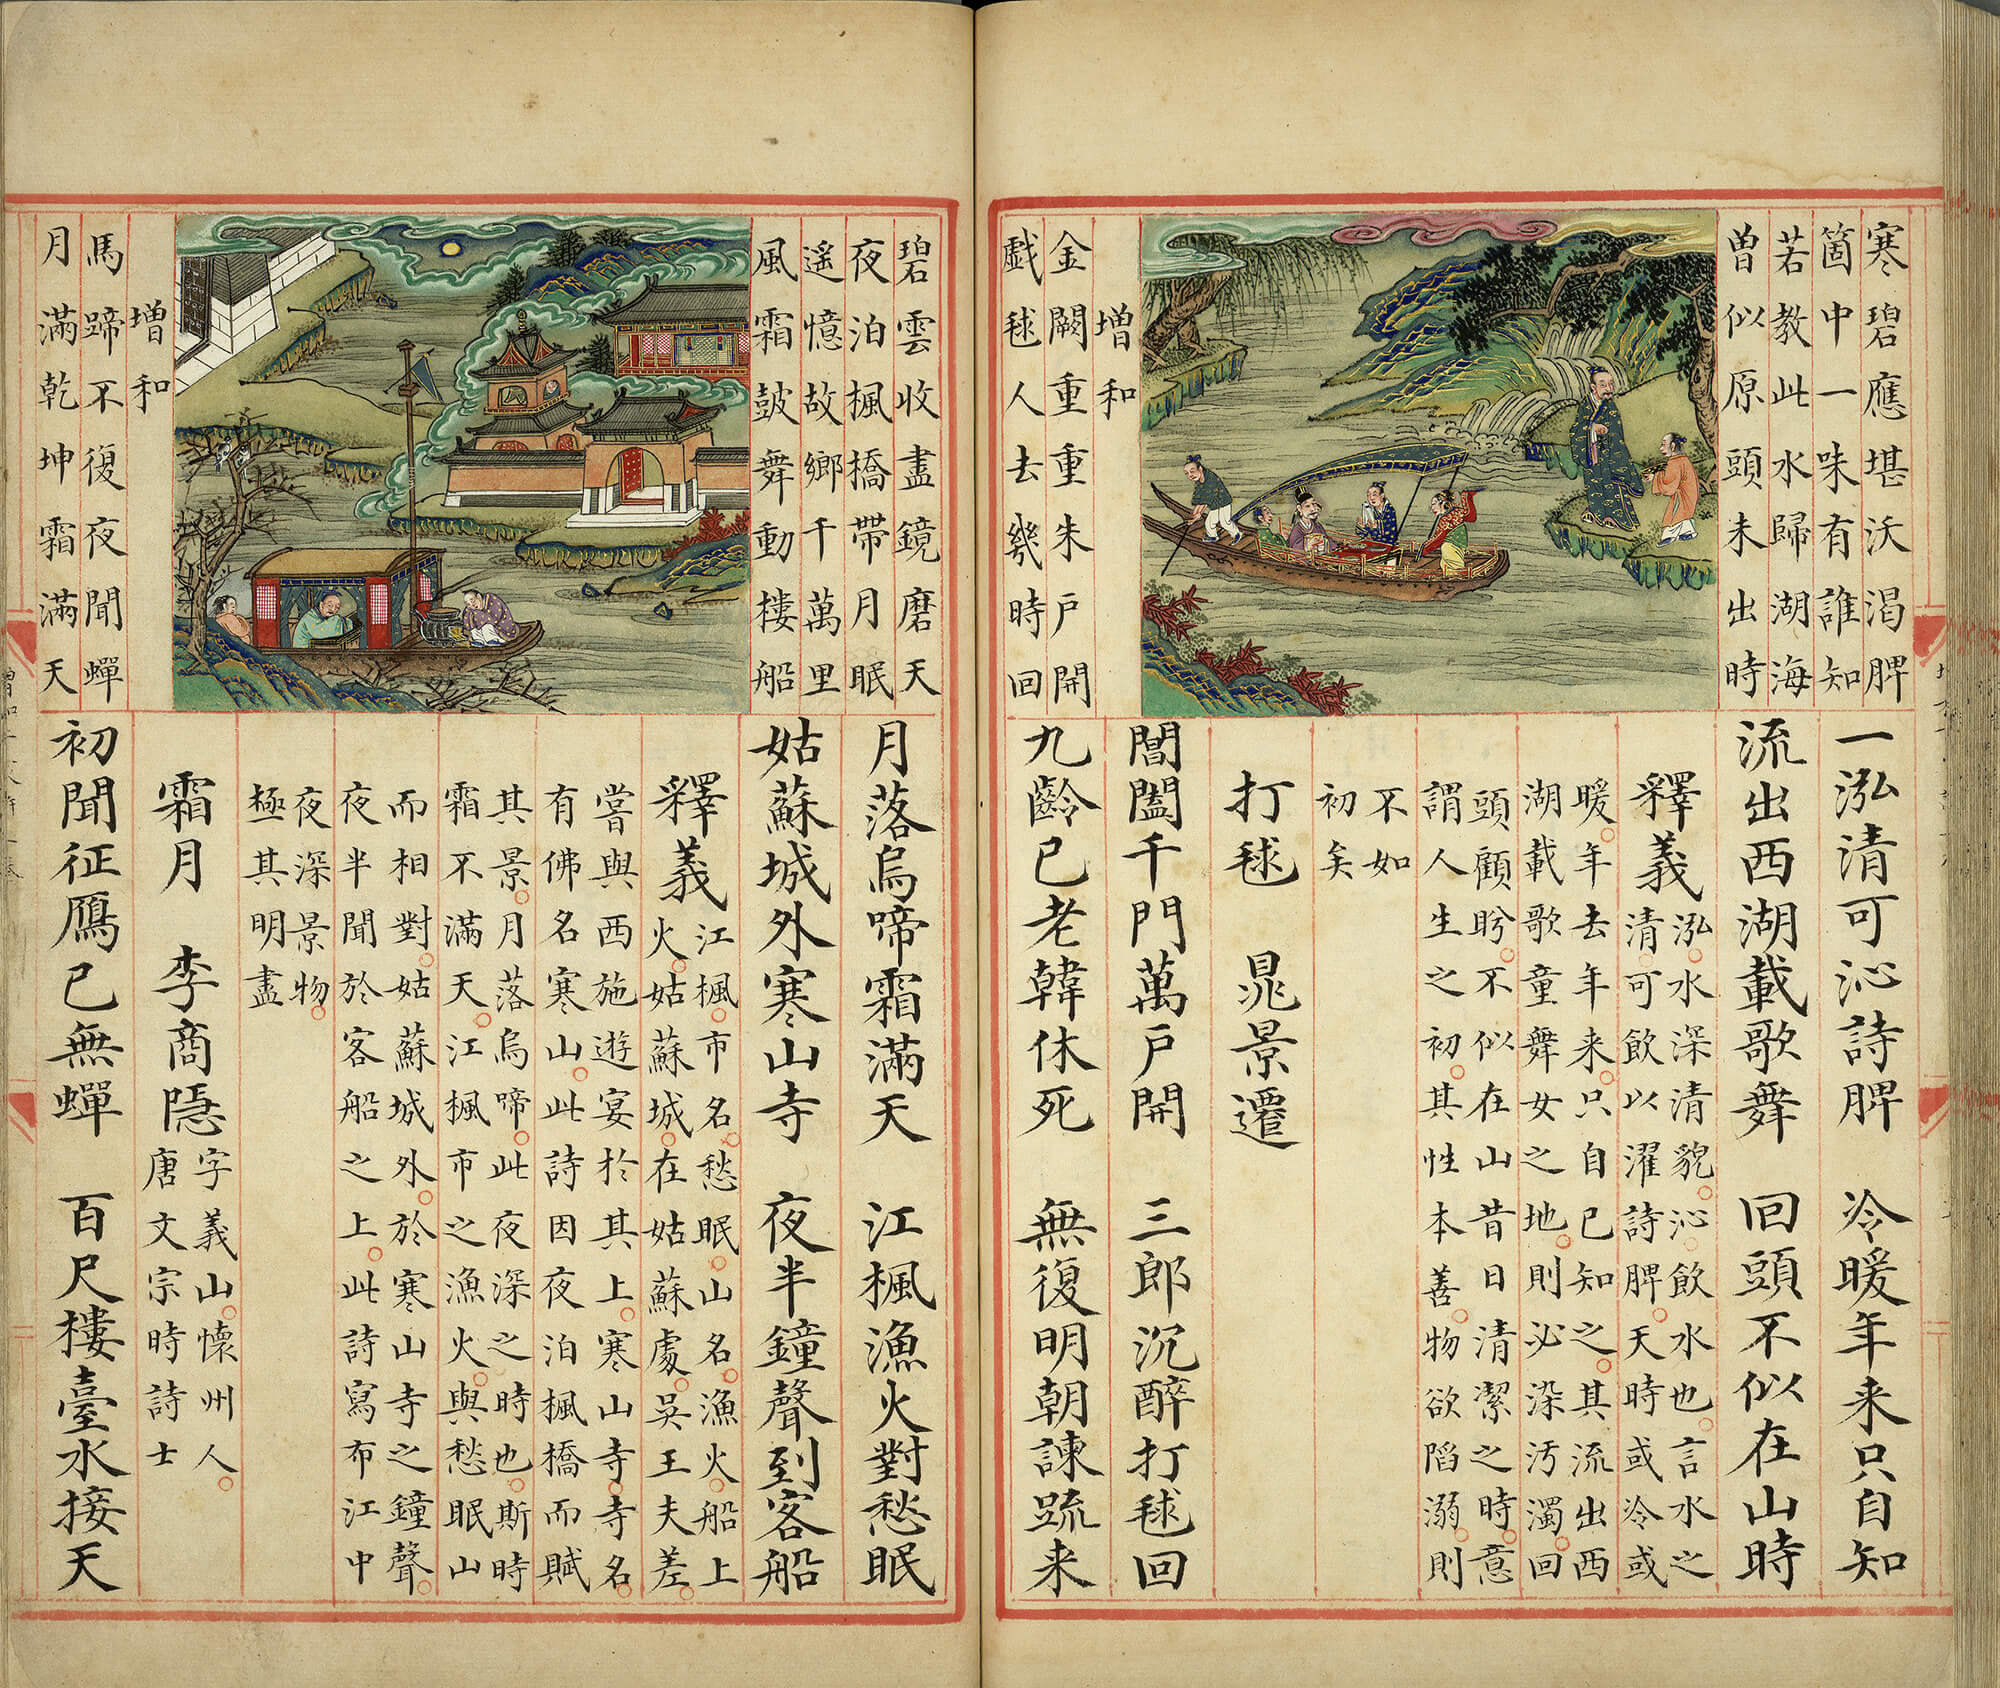 寒碧應堪沃渴脾
箇中一味有誰知
若教此水歸湖海
曽似原頭未出時
增和
金闕重重朱戶開
戲毬人去幾時回
一泓清可沁詩脾 冷暖年来只自知
流出西湖載歌舞 回頭不似在山時
釋義
泓水深清貌沁飲水也言水之
清可飲以濯詩脾天時或冷或
暖年去年来只自已知之其流出西
湖載歌童舞女之地則必染汚濁回
頭顧盻不似在山昔日清潔之時意
謂人生之初其性本善物欲陷溺則
不如
初矣
打毬 晁景遷
閶闔千門萬戶開 三郎沉醉打毬回
九齡已老韓休死 無復明朝諫疏来
碧雲收盡鏡磨天
夜泊楓橋帶月眠
遥憶故鄉千萬里
風霜鼓舞動樓船
增和
馬蹄不復夜聞蟬
月滿乾坤霜滿天
月落烏啼霜滿天 江楓漁火對愁眠
姑蘇城外寒山寺 夜半鐘聲到客船
釋義
江楓市名愁眠山名漁火船上
火姑蘇城在姑蘇處吳王夫差
嘗與西施遊宴於其上寒山寺寺名
有佛名寒山此詩因夜泊楓橋而賦
其景月落烏啼此夜深之時也斯時
霜不滿天江楓市之漁火與愁眠山
而相對姑蘇城外於寒山寺之鐘聲
夜半聞於客船之上此詩寫布江中
夜深景物
極其明盡
霜月 李商隱
字義山懷州人
唐文宗時詩士
初聞征鴈已無蟬 百尺樓臺水接天